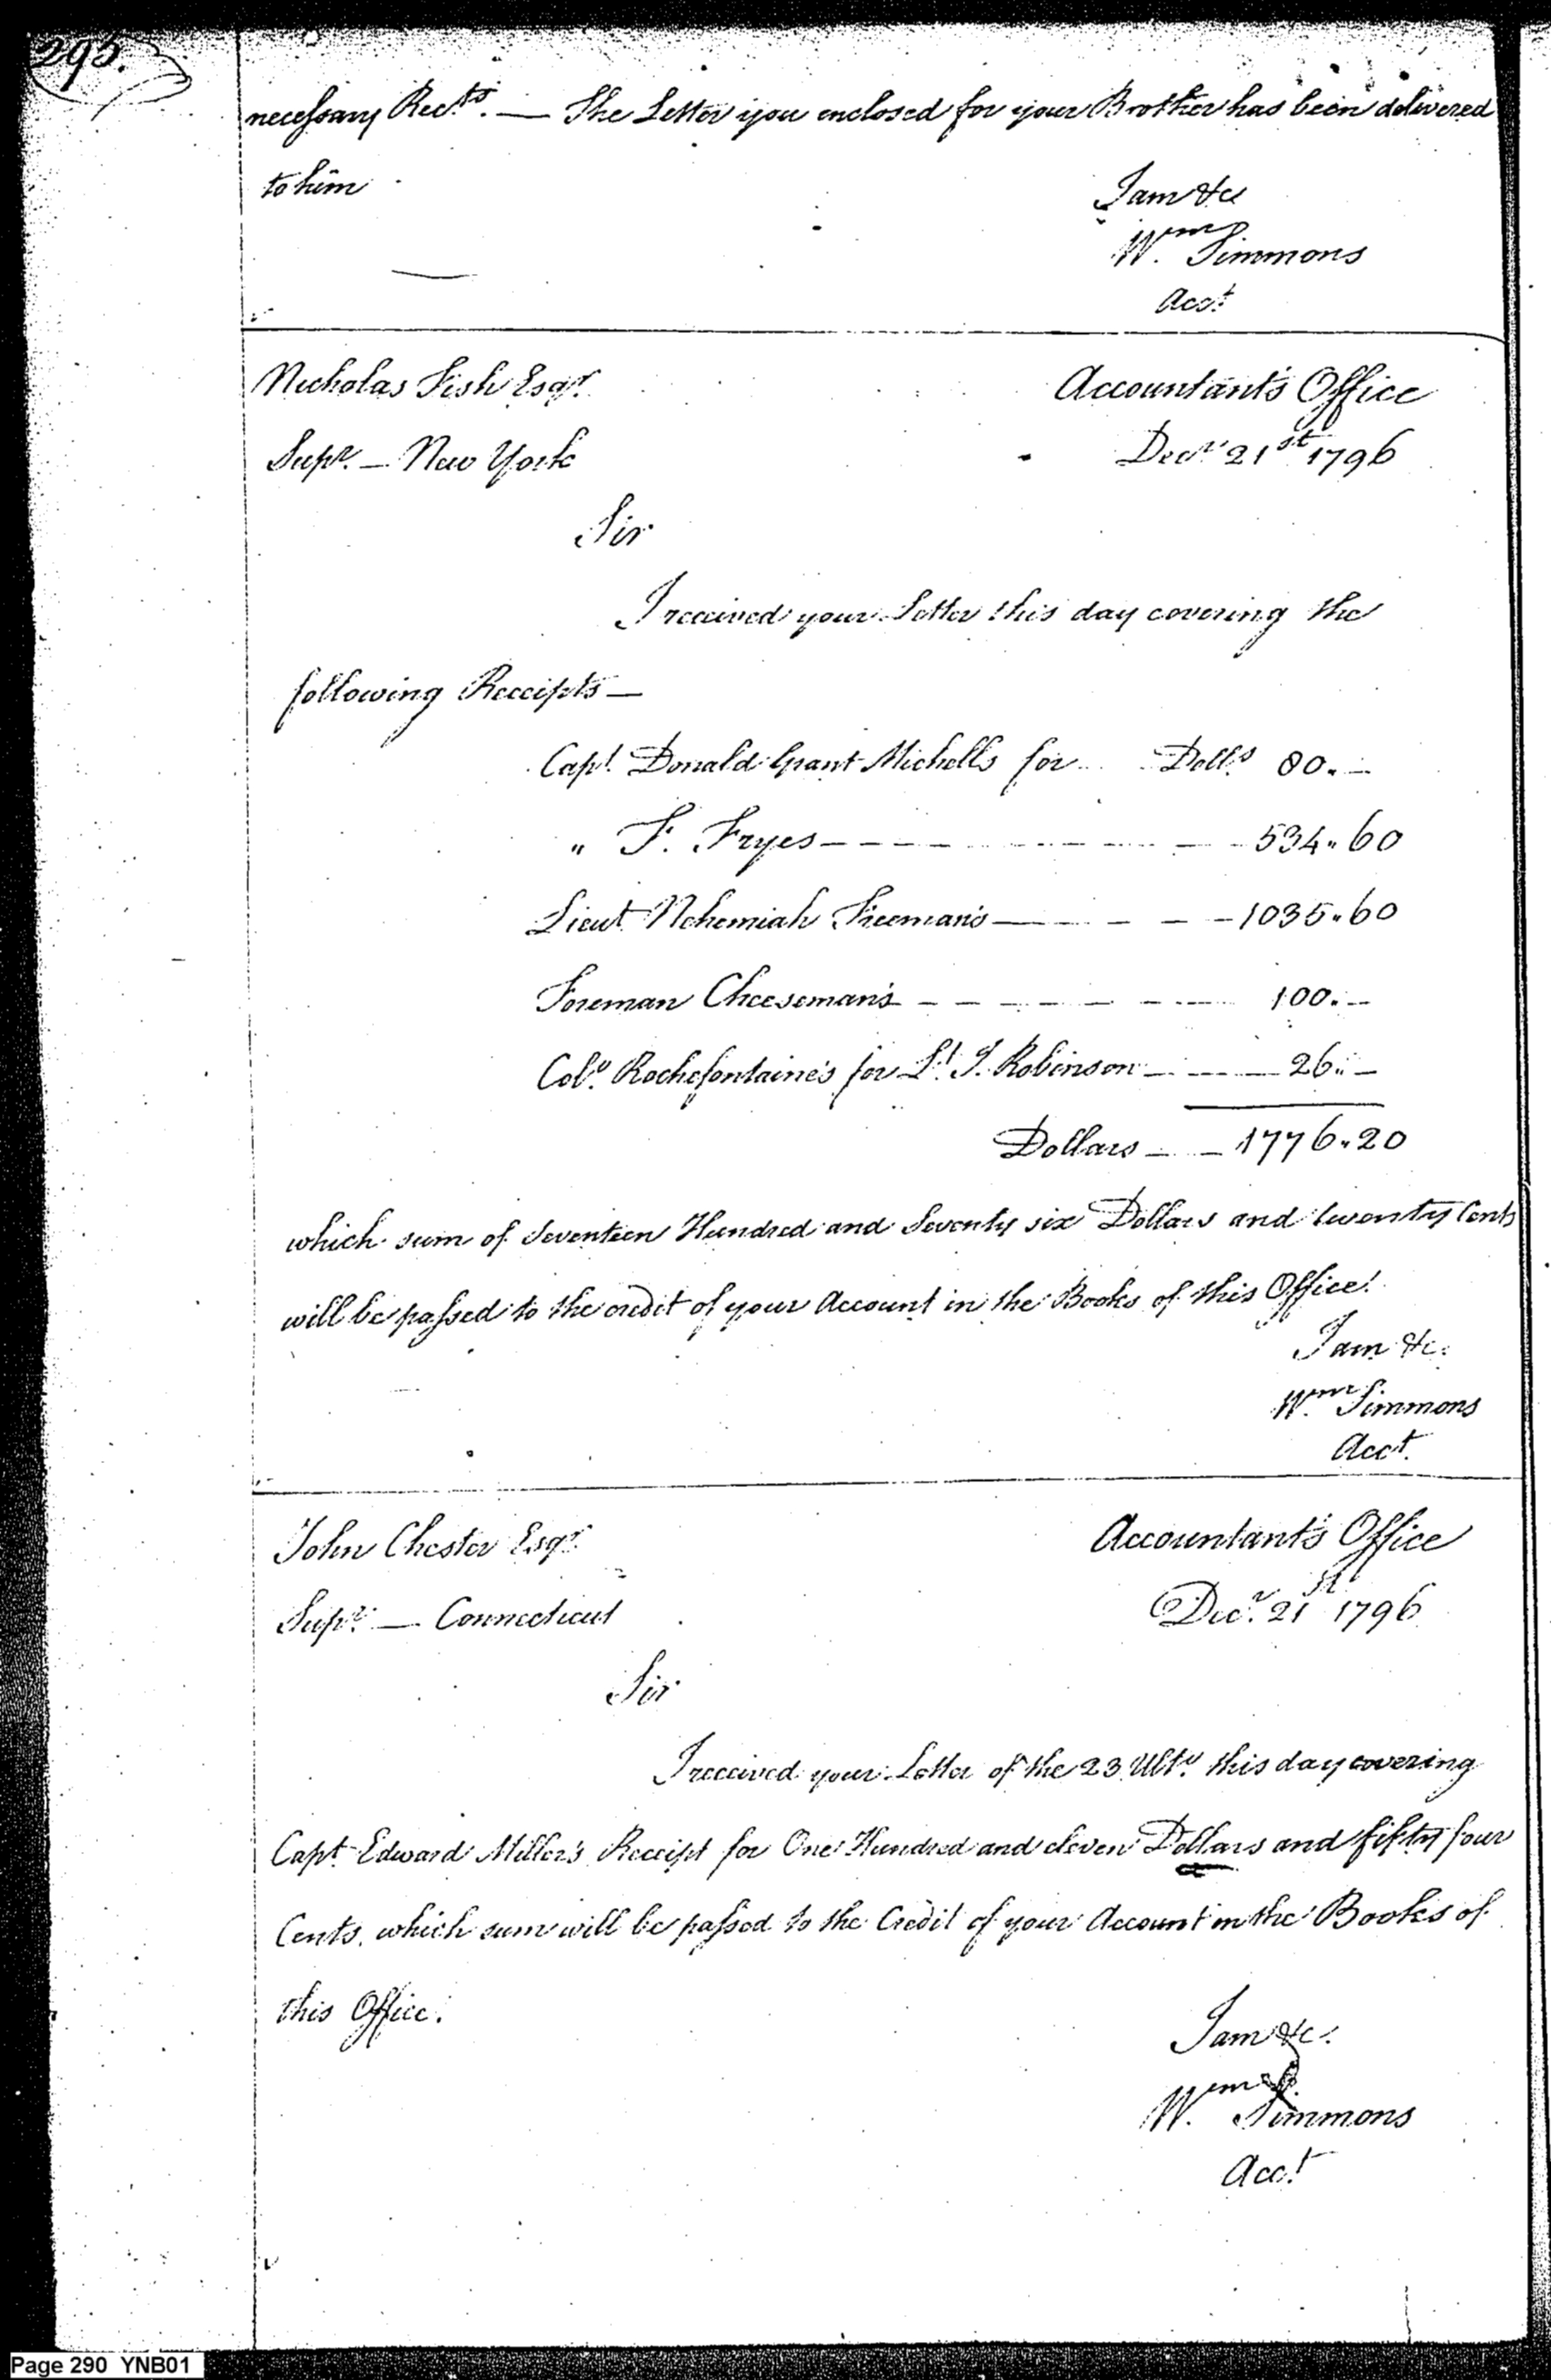 295.
necessary Rects. — The Letter you enclosed for your Brother has been delivered
to him
I am &c
Wm Simmons
Acct
Nicholas Fish Esqr.
Accountant's Office
Supr. — New York
Decr 21st 1796
Sir
I received your Letter this day covering the
following Receipts —
Capt. Donald Grant Michells for Dolls 80. —
" F. Fryes — 534.60
Lieut Nehemiah Freeman's — 1035.60
Foreman Cheeseman's — 100. —
Colo. Rochefontaine's for Lt. J. Robinson — 26. —
Dollars — 1776.20
which sum of Seventeen Hundred and Seventy six Dollars and twenty Cents
will be passed to the credit of your Account in the Books of this Office.
I am &c.
Wm Simmons
Acct.
John Chester Esqr.
Accountant's Office
Supr. — Connecticut
Decr. 21st 1796
Sir
I received your Letter of the 23 Ulto. this day covering
Capt Edward Miller's Receipt for One Hundred and eleven Dollars and fifty four
Cents, which sum will be passed to the Credit of your Account in the Books of
this Office.
I am &c.
Wm Simmons
Acct
Page 290 YNB01